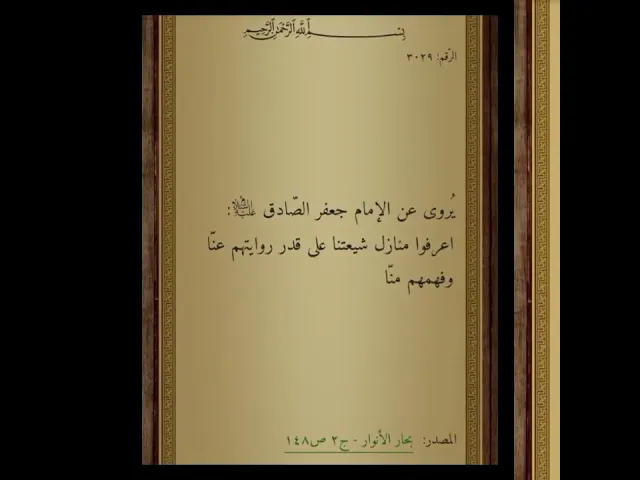 بسم الله الرحمن الرحيم
الرّقم: ٣٠٢٩
يُروى عن الإمام جعفر الصّادق عليه السلام:
اعرفوا منازل شيعتنا على قدر روايتهم عنّا
وفهمهم منّا
المصدر: بحار الأنوار - ج٢ ص١٤٨